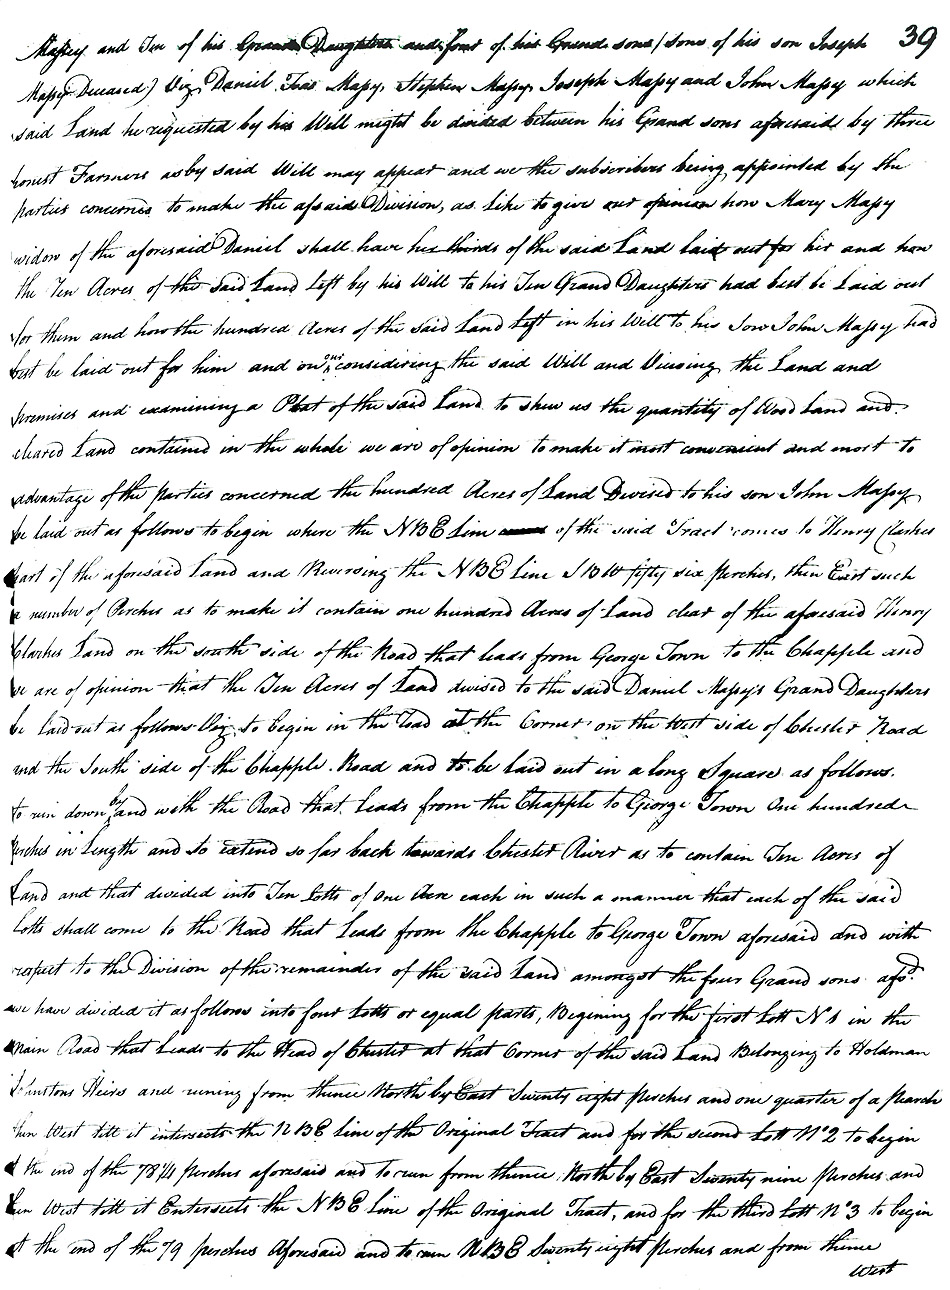 39
Massey and Ten of his Grand Daughters and four of his Grand sons (sons of his son Joseph
Massy Deceased) Viz Daniel Toas Massy, Stephen Massy, Joseph Massy and John Massy which
said Land he requested by his Will might be divided between his Grand sons aforesaid by three
honest Farmers as by said Will may appear and we the subscribers being appointed by the
parties concerned to make the afsaid Division, as like to give our opinion how Mary Massy
widow of the aforesaid Daniel shall have her thirds of the said Land laid out for her and how
the Ten Acres of the said Land Left by his Will to his Ten Grand Daughters had best be Laid out
for them and how the hundred Acres of the said Land Left in his Will to his Son John Massy had
best be laid out for him and on our considiring the said Will and Viewing the Land and
premises and examining a Plat of the said Land to shew us the quantity of Wood Land and
cleared Land contained in the whole we are of opinion to make it most convenient and most to
advantage of the parties concerned the hundred Acres of Land Devised to his son John Massy
be laid out as follows to begin where the NBE Line of the said Tract comes to Henry Clarkes
part of the aforesaid Land and Reversing the NBE Line SBW fifty six perches, then East such
a number of Perches as to make it contain one hundred Acres of Land clear of the aforesaid Henry
Clarkes Land on the south side of the Road that leads from George Town to the Chapple and
we are of opinion that the Ten Acres of Land devised to the said Daniel Massy's Grand Daughters
be laid out as follows Viz to begin in the Road at the Corner on the West side of Chester Road
and the South side of the Chapple Road and to be laid out in a long Square as follows.
to run down by and with the Road that leads from the Chapple to George Town One hundred
perches in Length and to extend so far back towards Chester River as to contain Ten Acres of
Land and that divided into Ten Lotts of one Acre each in such a manner that each of the said
Lotts shall come to the Road that Leads from the Chapple to George Town aforesaid and with
respect to the Division of the remainder of the said Land amongst the four Grand sons afsd.
we have divided it as follows into four Lotts or equal parts, Begining for the first Lott No 1 in the
main Road that Leads to the Head of Chester at that Corner of the said Land Belonging to Holdman
Johnstons Heirs and runing from thence North by East Seventy eight perches and one quarter of a pearch
then West till it intersects the NBE line of the Original Tract and for the second Lott No 2 to begin
at the end of the 78 1/4 perches aforesaid and to run from thence North by East Seventy nine perches and
then West till it Entersects the NBE Line of the Original Tract, and for the third Lott No 3 to begin
at the end of the 79 perches Aforesaid and to run NBE Seventy eight perches and from thence
West